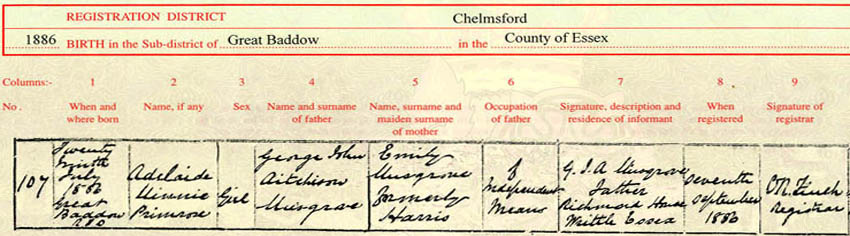 REGISTRATION DISTRICT Chelmsford
1886 BIRTH in the Sub-district of Great Baddow in the County of Essex
Columns:- 1 2 3 4 5 6 7 8 9
No. When and where born Name, if any Sex Name and surname of father Name, surname and maiden surname of mother Occupation of father Signature, description and residence of informant When registered Signature of registrar
107
Twenty
Ninth
July
1886
Great
Baddow
RSD
Adelaide
Minnie
Primrose
Girl
George John
Aitchison
Musgrove
Emily
Musgrove
formerly
Harris
of
Independent
Means
G.J.A Musgrove
Father
Richmond House
Writtle Essex
Seventh
September
1886
Finch
Registrar